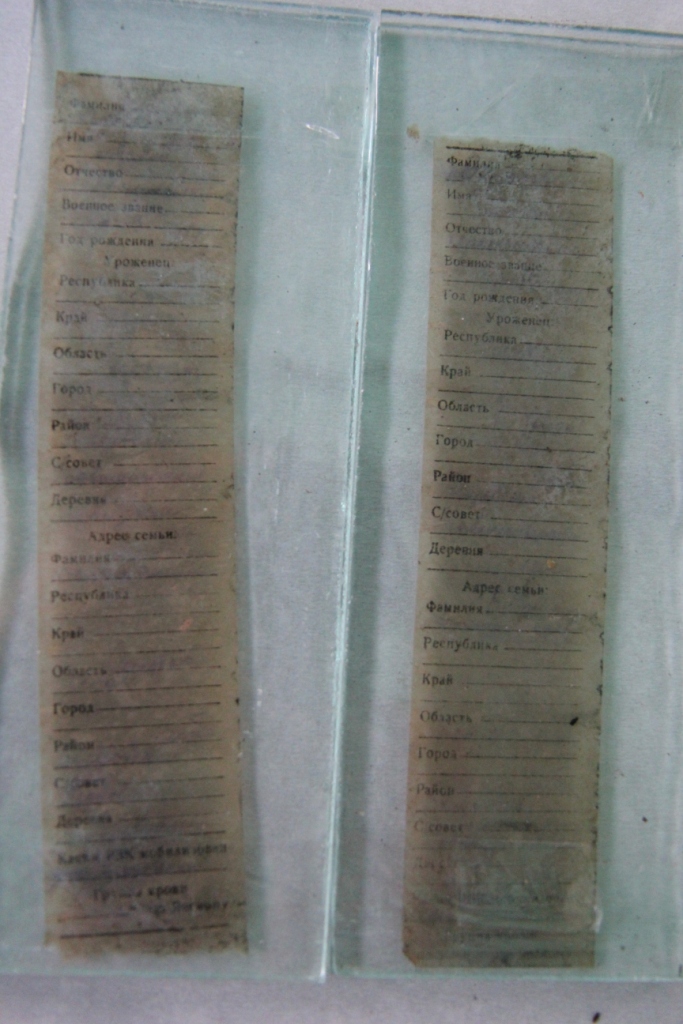 Фамилия
Имя
Отчество
Военное звание
Год рождения
Уроженец:
Республика
Край
Область
Город
Район
С/совет
Деревня
Адрес семьи:
Фамилия
Республика
Край
Область
Город
Район
С/совет
Деревня
Каким РВК мобилизован
Группа крови
Фамилия
Имя
Отчество
Военное звание
Год рождения
Уроженец:
Республика
Край
Область
Город
Район
С/совет
Деревня
Адрес семьи:
Фамилия
Республика
Край
Область
Город
Район
С/совет